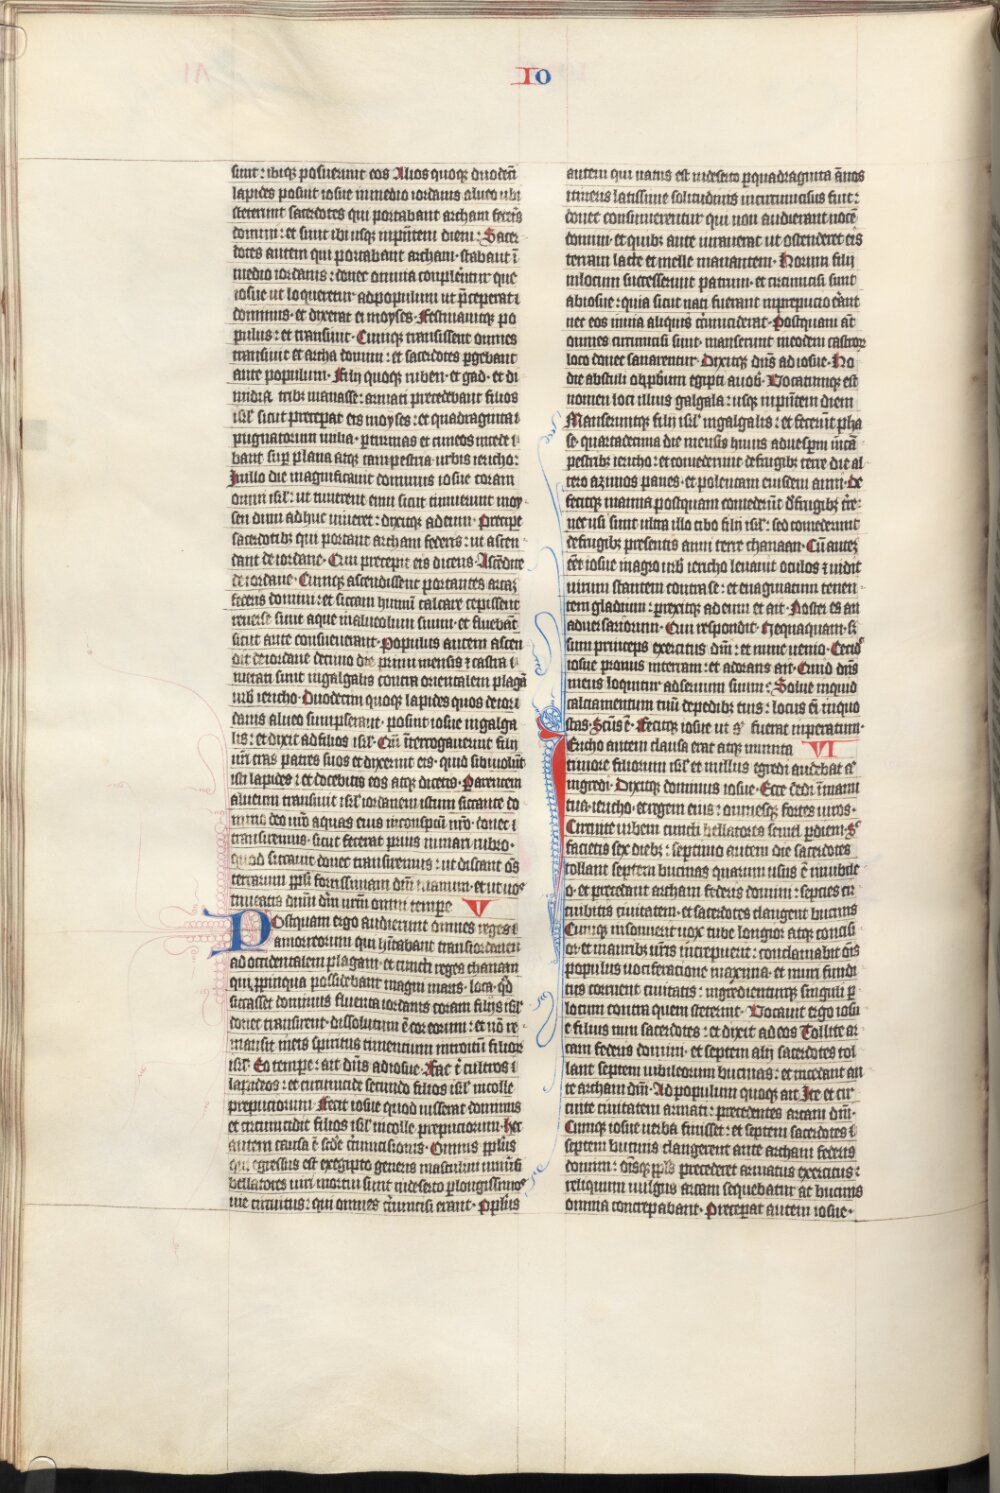 IO
sunt : ibiq; posuerunt eos Alios quoq; duodecī
lapides posuit iosue in medio iordanis alueo ubi
steterunt sacerdotes qui portabant archam federis
domini : et sunt ibi usq; in pn̄tem diem : Sacer
dotes autem qui portabant archam · stabant ī
medio iordanis : donec omnia complentur que
iosue ut loqueretur ad populum ut p̄ceperat
dominus · et dixerat ei moyses · Festinauitq; po
pulus : et transiuit · Cumq; transissent omnes
transiuit et archa domini : et sacerdotes pgebant
ante populum · Filij quoq; ruben · et gad · et di
midia tribꝫ manasse : armati precedebant filios
isrl̄ sicut preceperat eis moyses : et quadraginta
pugnatorum milia · p turmas et cuneos incede
bant sup plana atq; campestria urbis iericho :
In illo die magnificauit dominus iosue coram
omni isrl̄ : ut timerent eum sicut timuerunt moy
sen dum adhuc uiueret : dixitq; ad eum · Precipe
sacerdotibꝫ qui portant archam federis : ut ascen
dant de iordane · Qui precepit eis dicens · Ascēdite
de iordane · Cumq; ascendissent portantes arcā
federis domini : et siccam humū calcare cepissent
reuerse sunt aque in alueolum suum · et fluebāt
sicut ante consueuerant · Populus autem ascen
dit de iordane decimo die primi mensis ⁊ castra
metati sunt in galgalis contra orientalem plagā
urb̄ iericho · Duodecim quoq; lapides quos de ior
danis alueo sumpserant · posuit iosue in galga
lis : et dixit ad filios isrl̄ · Cū īterrogauerint filij
ur̄i cras patres suos et dixerint eis · quid sibi uolūt
isti lapides : et docebitis eos atq; dicetis · Parentem
alueum transiuit isrl̄ iordanem istum siccante do
mino deo ur̄o aquas eius in conspectu ur̄o · donec
transiremus · sicut fecerat prius in mari rubro ·
quod siccauit donec transiremus : ut discant oēs
terrarum ppl̄i fortissimam dn̄i manum · et ut uos
timeatis dn̄m dm̄ urm̄ omni tempe V
Postquam ergo audierunt omnes reges
amorreorum qui hītabant trans iordanem
ad occidentalem plagam · et cuncti reges chanaan
qui ppinqua possidebant magni maris · loca · qd̄
siccasset dominus fluenta iordanis coram filijs isrl̄
donec transirent · dissolutum ē cor eorum : et nō re
mansit in eis spiritus timentium introitū filiorū
isrl̄ · Eo tempe : ait dn̄s ad iosue · Fac t̄ cultros
lapideos : et circumcide secundo filios isrl̄ in colle
prepuciorum · Fecit iosue quod iusserat dominus
et circumcidit filios isrl̄ in colle prepuciorum · Hec
autem causa ē scd̄e circumcisionis · Omnis ppl̄us
qui egressus est ex egipto generis masculini uniuersi
bellatores uiri mortui sunt in deserto p longissimos
uie circuitus : qui omnes circūcisi erant · Ppl̄us
autem qui natus est in deserto p quadraginta ānos
itineris latissime solitudinis incircumcisus fuit :
donec consumerentur qui non audierant uocē
domini · et quibꝫ ante iurauerat ut ostenderet eis
terram lacte et melle manantem · Horum filij
in locum successerunt patrum · et circumcisi sunt
ab iosue : quia sicut nati fuerant in prepucio erāt
nec eos in uia aliquis circūciderat · Postquam aūt
omnes circumcisi sunt · manserunt in eodem castrorū
loco donec sanarentur · Dixitq; dn̄s ad iosue · Ho
die abstuli obprb̄ium egipti a uob · Vocatumq; est
nomen loci illius galgala : usq; in pn̄tem diem
Manseruntq; filij isrl̄ in galgalis : et fecerūt pha
se · quartadecima die mensis huius ad uespm̄ in cā
pestribꝫ iericho : et comederunt de frugibꝫ terre die al
tero azimos panes · et polentam eiusdem anni · De
fecitq; manna postquam comederūt d̄ frugibꝫ tr̄e :
nec usi sunt ultra illo cibo filij isrl̄ : sed comederunt
de frugibꝫ presentis anni terre chanaan · Cū autem
eēt iosue in agro urb̄ iericho leuauit oculos ⁊ uidit
uirum stantem contra se : et euaginatum tenen
tem gladium : prexitq; ad eum et ait · Noster es an
aduersariorum · Qui respondit · Nequaquam · s̄
sum princeps exercitus dn̄i : et nunc uenio · Cecid̄
iosue pronus in terram : et adorans ait · Quid dn̄s
meus loquitur ad seruum suum : Solue inquid
calciamentum tuū de pedibꝫ tuis : locus em̄ in quo
stas · Scūs ē · Fecitq; iosue ut si fuerat imperatum ·
Iericho autem clausa erat atq; munita VI
timore filiorum isrl̄ et nullus egredi audebat aut
ingredi · Dixitq; dominus iosue · Ecce dedi ī manu
tua · iericho · et regem eius : omnesq; fortes uiros ·
Circuite urbem cuncti bellatores semel p diem · Sic
facietis sex diebꝫ : septimo autem die sacerdotes
tollant septem bucinas quarum usus ē in iubile
o · et precedant archam federis domini : septies cir
cuibitis ciuitatem · et sacerdotes clangent bucinis
Cumq; insonuerit uox tube longior atq; concisi
or · et in auribꝫ ur̄is increpuerit : conclamabit oīs
populus uociferacione maxima · et muri fundi
tus corruent ciuitatis : ingredienturq; singuli p
locum contra quem steterint · Vocauit ergo iosu
e filius nun sacerdotes : et dixit ad eos Tollite ar
cam federis domini · et septem alij sacerdotes tol
lant septem iubileorum bucinas : et incedant an
te archam dn̄i · Ad populum quoq; ait Ite et cir
cuite ciuitatem armati : precedentes arcam dn̄i ·
Cumq; iosue uerba finisset : et septem sacerdotes
septem bucinis clangerent ante archam federis
domini : om̄sq; ppl̄s precederet armatus exercitus :
reliquum uulgus arcam sequebatur ac bucinis
omnia concrepabant · Preceperat autem iosue ·